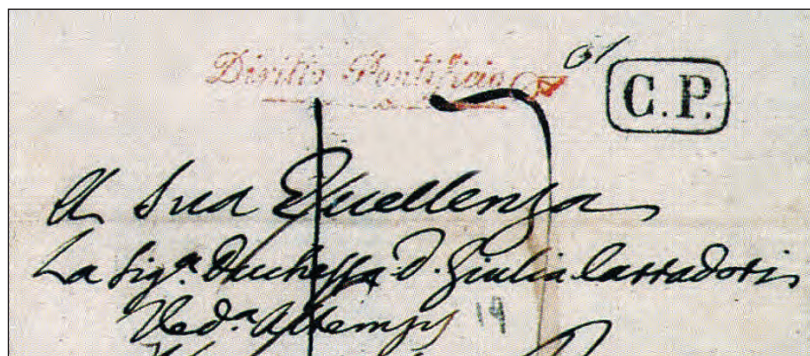 Diritto Pontificio
C.P.
A Sua Eccellenza
La Sig.ª Duchessa D. Giulia Carradori
Ved.ª Altemps 19